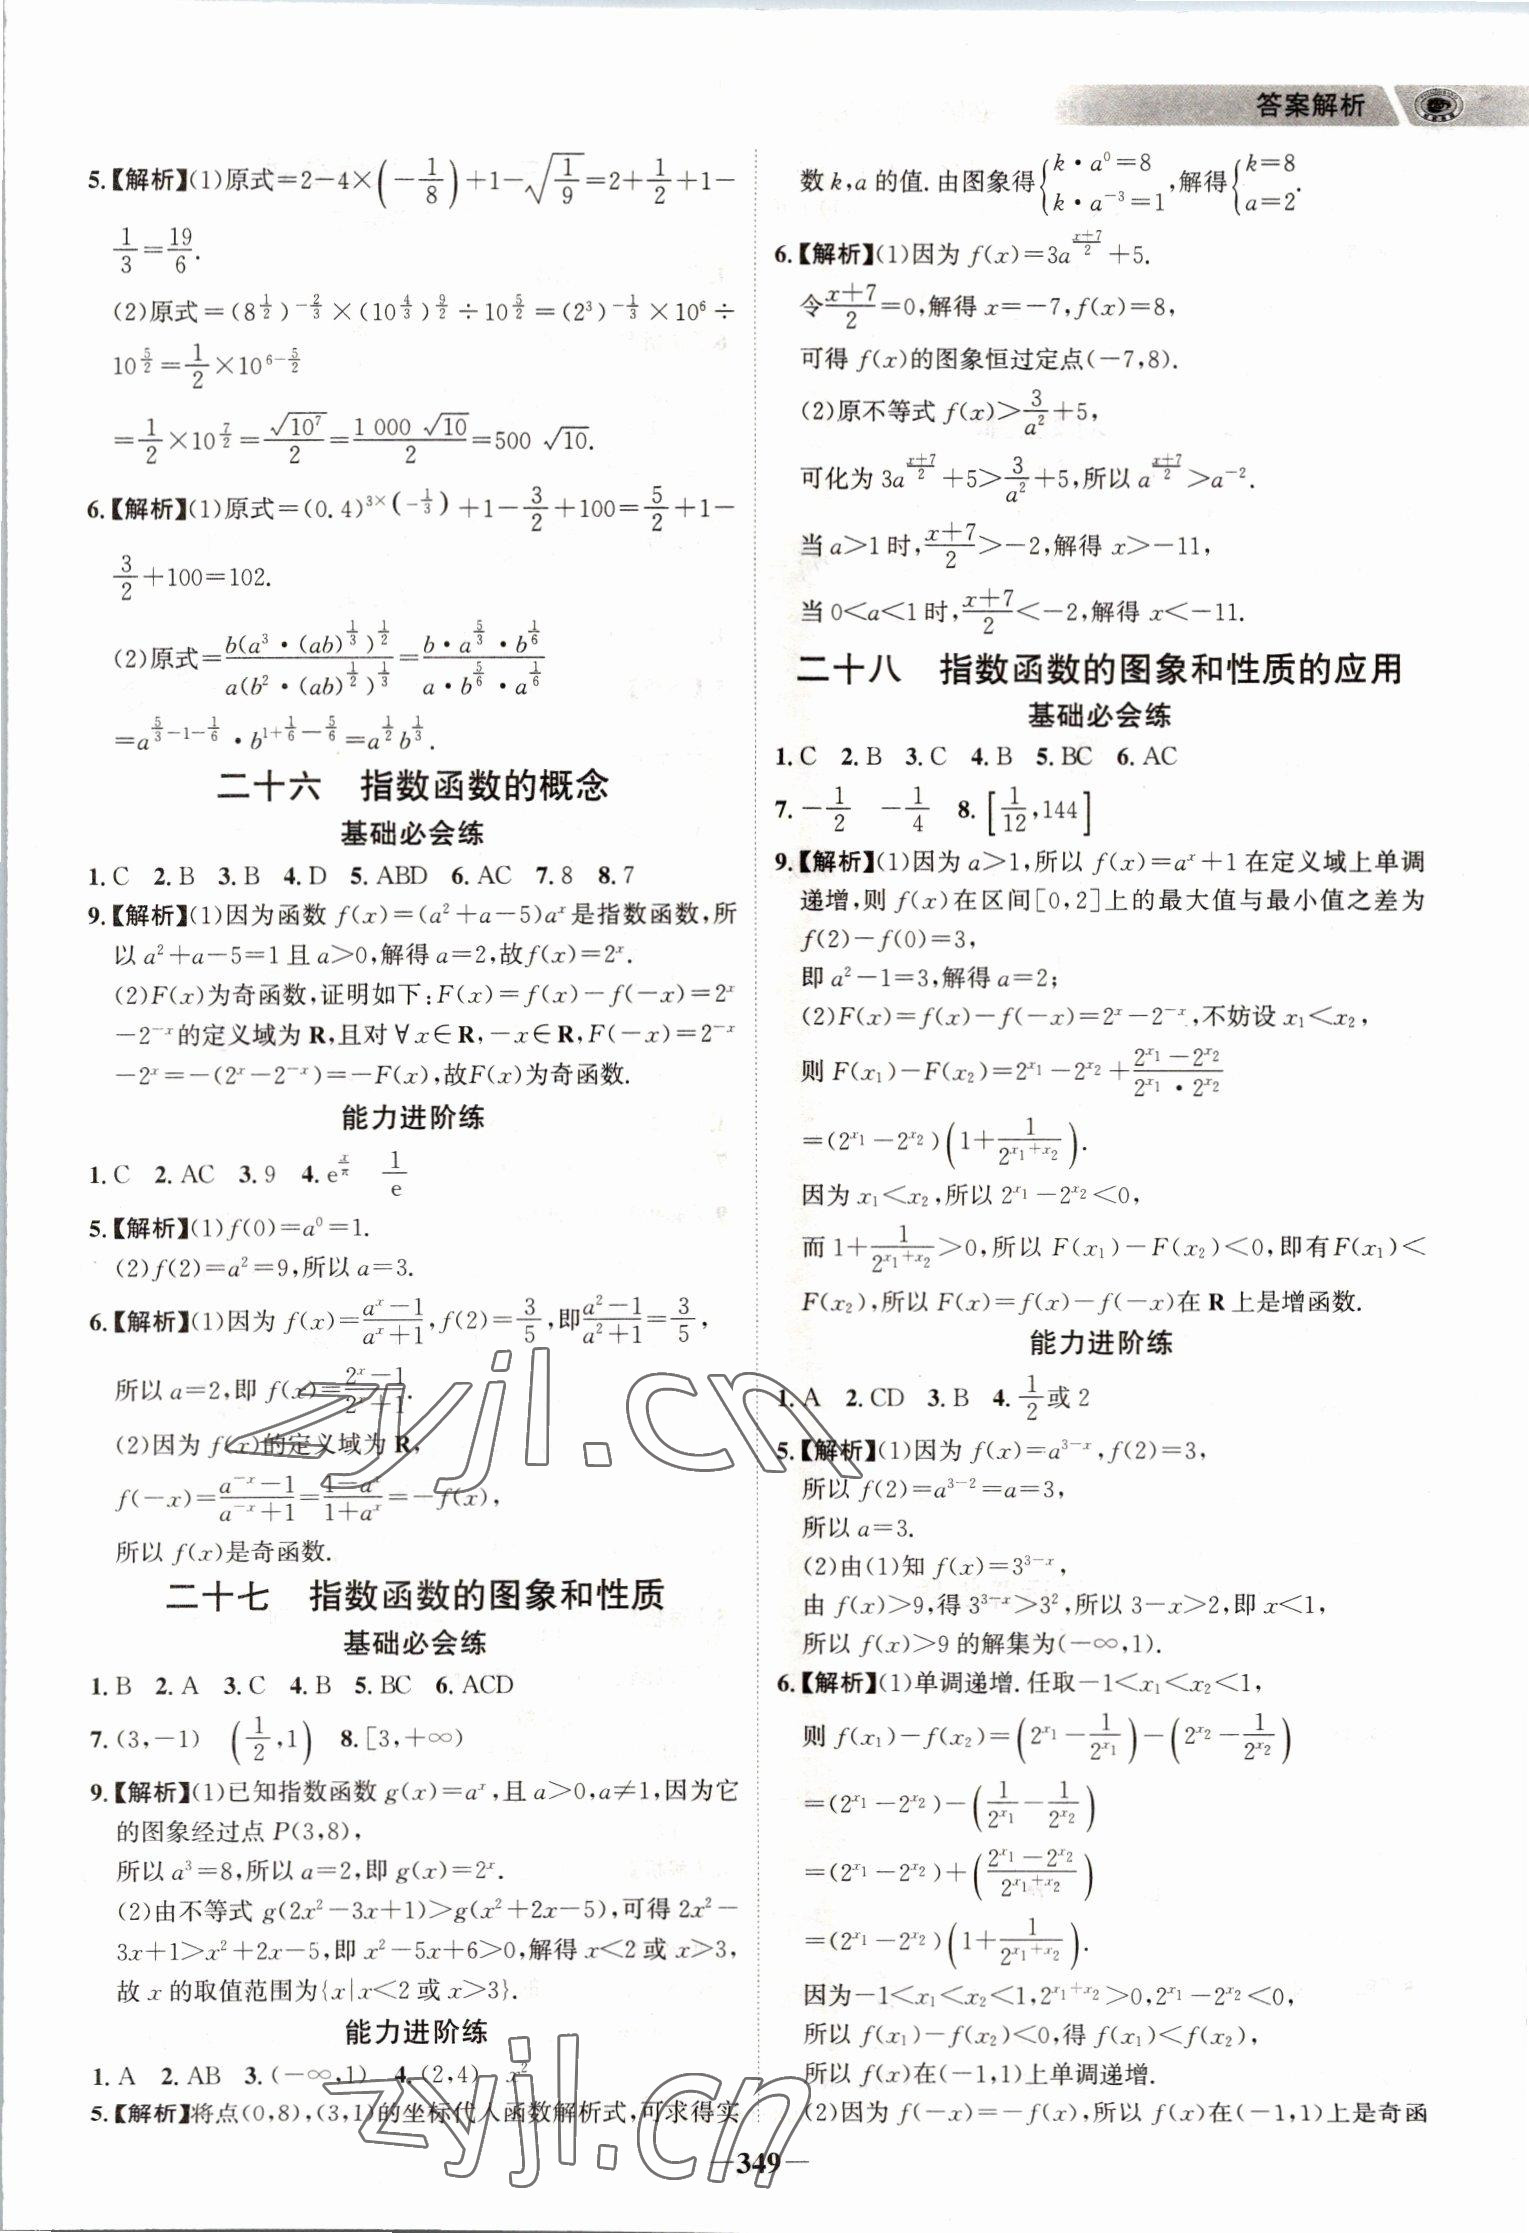 答案解析
5.【解析】(1)原式=2-4×(-1/8)+1-√(1/9)=2+1/2+1-
1/3=19/6.
(2)原式=(8^(1/2))^(-2/3)×(10^(4/3))^(9/2)÷10^(5/2)=(2³)^(-1/3)×10⁶÷
10^(5/2)=1/2×10^(6-5/2)
=1/2×10^(7/2)=√(10⁷)/2=1 000 √10/2=500 √10.
6.【解析】(1)原式=(0.4)^(3×(-1/3))+1-3/2+100=5/2+1-
3/2+100=102.
(2)原式=b(a³·(ab)^(1/3))^(1/2)/a(b²·(ab)^(1/2))^(1/3)=b·a^(5/3)·b^(1/6)/a·b^(5/6)·a^(1/6)
=a^(5/3-1-1/6)·b^(1+1/6-5/6)=a^(1/2)b^(1/3).
二十六 指数函数的概念
基础必会练
1.C 2.B 3.B 4.D 5.ABD 6.AC 7.8 8.7
9.【解析】(1)因为函数 f(x)=(a²+a-5)a^x是指数函数,所
以 a²+a-5=1 且 a>0,解得 a=2,故f(x)=2^x.
(2)F(x)为奇函数,证明如下:F(x)=f(x)-f(-x)=2^x
-2^(-x)的定义域为 R,且对∀x∈R,-x∈R,F(-x)=2^(-x)
-2^x=-(2^x-2^(-x))=-F(x),故F(x)为奇函数.
能力进阶练
1.C 2.AC 3.9 4.e^(x/π) 1/e
5.【解析】(1)f(0)=a⁰=1.
(2)f(2)=a²=9,所以 a=3.
6.【解析】(1)因为 f(x)=(a^x-1)/(a^x+1),f(2)=3/5,即(a²-1)/(a²+1)=3/5,
所以 a=2,即 f(x)=(2^x-1)/(2^x+1).
(2)因为 f(x)的定义域为 R,
f(-x)=(a^(-x)-1)/(a^(-x)+1)=(1-a^x)/(1+a^x)=-f(x),
所以 f(x)是奇函数.
二十七 指数函数的图象和性质
基础必会练
1.B 2.A 3.C 4.B 5.BC 6.ACD
7.(3,-1) (1/2,1) 8.[3,+∞)
9.【解析】(1)已知指数函数 g(x)=a^x,且 a>0,a≠1,因为它
的图象经过点 P(3,8),
所以 a³=8,所以 a=2,即 g(x)=2^x.
(2)由不等式 g(2x²-3x+1)>g(x²+2x-5),可得 2x²-
3x+1>x²+2x-5,即 x²-5x+6>0,解得 x<2 或 x>3,
故 x 的取值范围为{x|x<2 或 x>3}.
能力进阶练
1.A 2.AB 3.(-∞,1) 4.(2,4) x²
5.【解析】将点(0,8),(3,1)的坐标代入函数解析式,可求得实
数 k,a 的值.由图象得{k·a⁰=8 k·a⁻³=1,解得{k=8 a=2.
6.【解析】(1)因为 f(x)=3a^((x+7)/2)+5.
令(x+7)/2=0,解得 x=-7,f(x)=8,
可得 f(x)的图象恒过定点(-7,8).
(2)原不等式 f(x)>3/a²+5,
可化为 3a^((x+7)/2)+5>3/a²+5,所以 a^((x+7)/2)>a⁻².
当 a>1 时,(x+7)/2>-2,解得 x>-11,
当 0<a<1 时,(x+7)/2<-2,解得 x<-11.
二十八 指数函数的图象和性质的应用
基础必会练
1.C 2.B 3.C 4.B 5.BC 6.AC
7.-1/2 -1/4 8.[1/12,144]
9.【解析】(1)因为 a>1,所以 f(x)=a^x+1 在定义域上单调
递增,则 f(x)在区间[0,2]上的最大值与最小值之差为
f(2)-f(0)=3,
即 a²-1=3,解得 a=2;
(2)F(x)=f(x)-f(-x)=2^x-2^(-x),不妨设 x₁<x₂,
则 F(x₁)-F(x₂)=2^x₁-2^x₂+(2^x₁-2^x₂)/(2^x₁·2^x₂)
=(2^x₁-2^x₂)(1+1/2^(x₁+x₂)).
因为 x₁<x₂,所以 2^x₁-2^x₂<0,
而 1+1/2^(x₁+x₂)>0,所以 F(x₁)-F(x₂)<0,即有F(x₁)<
F(x₂),所以 F(x)=f(x)-f(-x)在 R 上是增函数.
能力进阶练
1.A 2.CD 3.B 4.1/2或 2
5.【解析】(1)因为 f(x)=a^(3-x),f(2)=3,
所以 f(2)=a^(3-2)=a=3,
所以 a=3.
(2)由(1)知 f(x)=3^(3-x),
由 f(x)>9,得 3^(3-x)>3²,所以 3-x>2,即 x<1,
所以 f(x)>9 的解集为(-∞,1).
6.【解析】(1)单调递增.任取-1<x₁<x₂<1,
则 f(x₁)-f(x₂)=(2^x₁-1/2^x₁)-(2^x₂-1/2^x₂)
=(2^x₁-2^x₂)-(1/2^x₁-1/2^x₂)
=(2^x₁-2^x₂)+((2^x₁-2^x₂)/2^(x₁+x₂))
=(2^x₁-2^x₂)(1+1/2^(x₁+x₂)).
因为-1<x₁<x₂<1,2^(x₁+x₂)>0,2^x₁-2^x₂<0,
所以 f(x₁)-f(x₂)<0,得 f(x₁)<f(x₂),
所以 f(x)在(-1,1)上单调递增.
(2)因为 f(-x)=-f(x),所以 f(x)在(-1,1)上是奇函
—349—
zyjl.cn
zyjl.cn